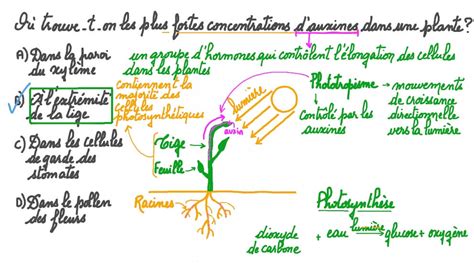 Où trouve-t-on les plus fortes concentrations d'auxines dans une plante?
A) Dans la paroi
du xylème
B) A l'extrémité
de la tige
C) Dans les cellules
de garde des
stomates
D) Dans le pollen
des fleurs
un groupe d'hormones qui contrôlent l'élongation des cellules
dans les plantes
Contiennent la
majorité des
cellules
photosynthétiques
Tige
Feuille
Racines
lumière
auxin
Phototropisme → mouvements
de croissance
directionnelle
vers la lumière
Contrôlé par les
auxines
Photosynthèse
dioxyde
de carbone
+ eau
lumière
glucose + oxygène